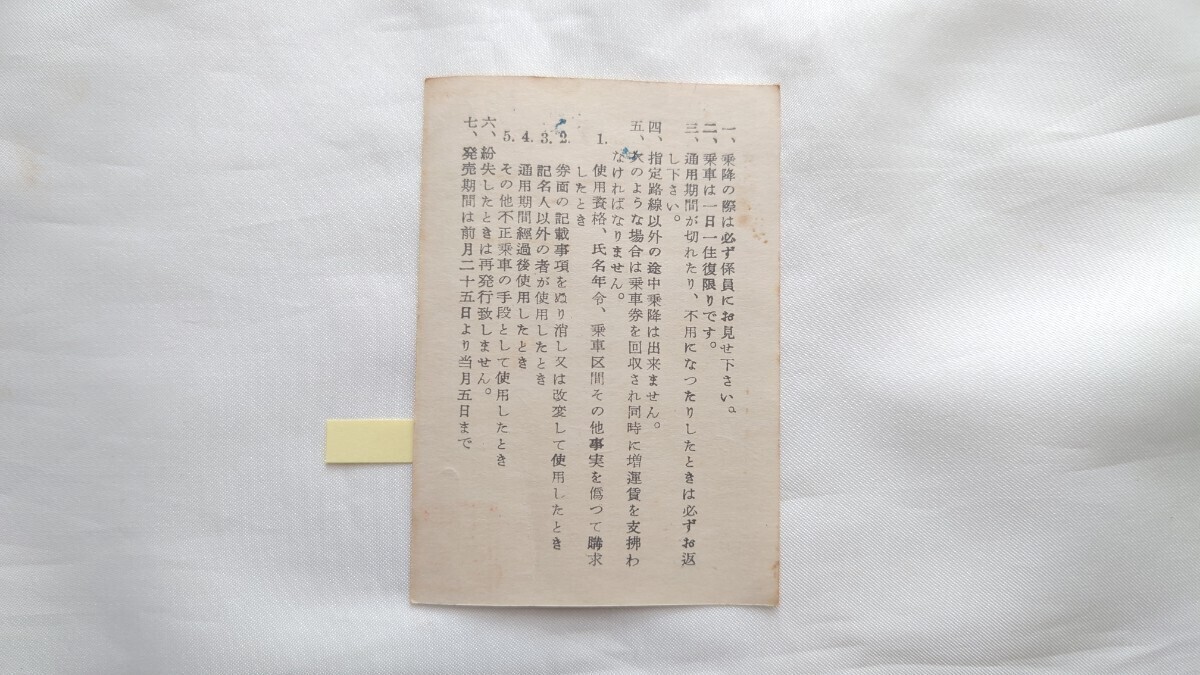 一、乗降の際は必ず係員にお見せ下さい。
二、乗車は一日一往復限りです。
三、通用期間が切れたり、不用になつたりしたときは必ずお返
し下さい。
四、指定路線以外の途中乗降は出来ません。
五、次のような場合は乗車券を回収され同時に増運賃を支拂わ
なければなりません。
1. 使用資格、氏名年令、乗車区間その他事実を僞つて購求
したとき
2. 券面の記載事項をぬり消し又は改変して使用したとき
3. 記名人以外の者が使用したとき
4. 通用期間經過後使用したとき
5. その他不正乗車の手段として使用したとき
六、紛失したときは再発行致しません。
七、発売期間は前月二十五日より当月五日まで